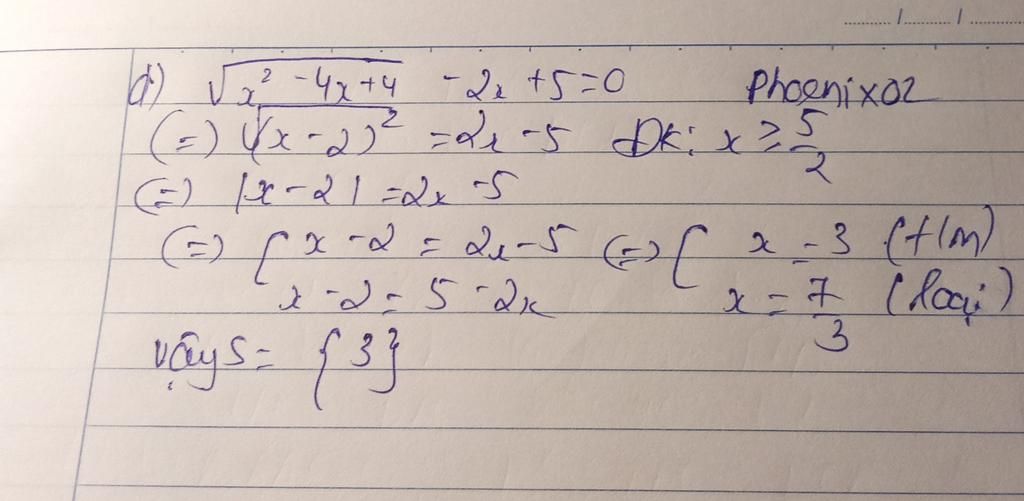 d) √(x² - 4x + 4) - 2x + 5 = 0 Phoenix02
(=) √(x - 2)² = 2x - 5 Đk: x ≥ 5/2
(=) |x - 2| = 2x - 5
(=) [ x - 2 = 2x - 5 (=) [ x = 3 (t/m)
x - 2 = 5 - 2x x = 7/3 (loại)
vậy S = {3}